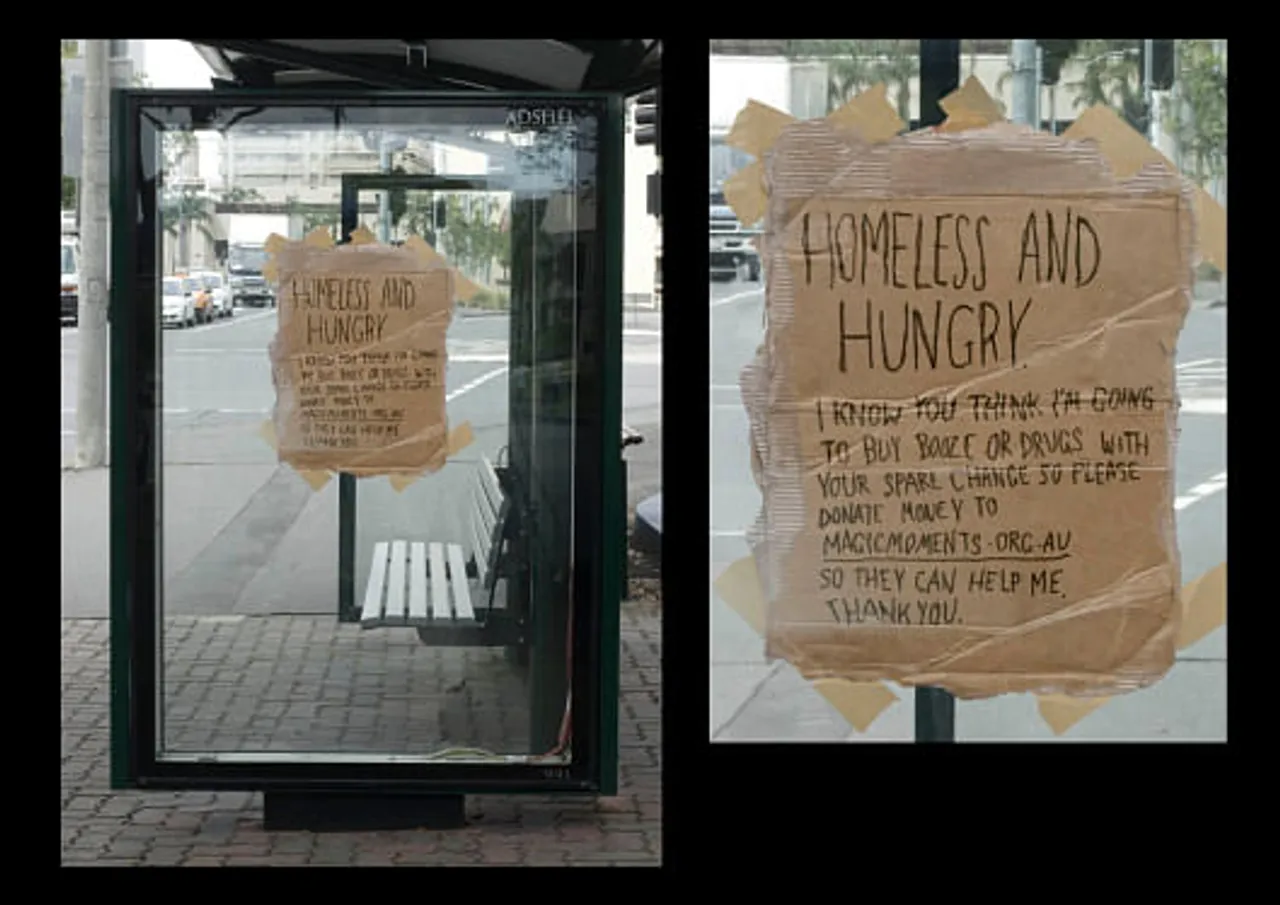 ADSHEL
HOMELESS AND
HUNGRY
I KNOW YOU THINK I'M GOING
TO BUY BOOZE OR DRUGS WITH
YOUR SPARE CHANGE SO PLEASE
DONATE MONEY TO
MAGICMOMENTS.ORG.AU
SO THEY CAN HELP ME.
THANK YOU.
HOMELESS AND
HUNGRY.
I KNOW YOU THINK I'M GOING
TO BUY BOOZE OR DRUGS WITH
YOUR SPARE CHANGE SO PLEASE
DONATE MONEY TO
MAGICMOMENTS.ORG.AU
SO THEY CAN HELP ME.
THANK YOU.